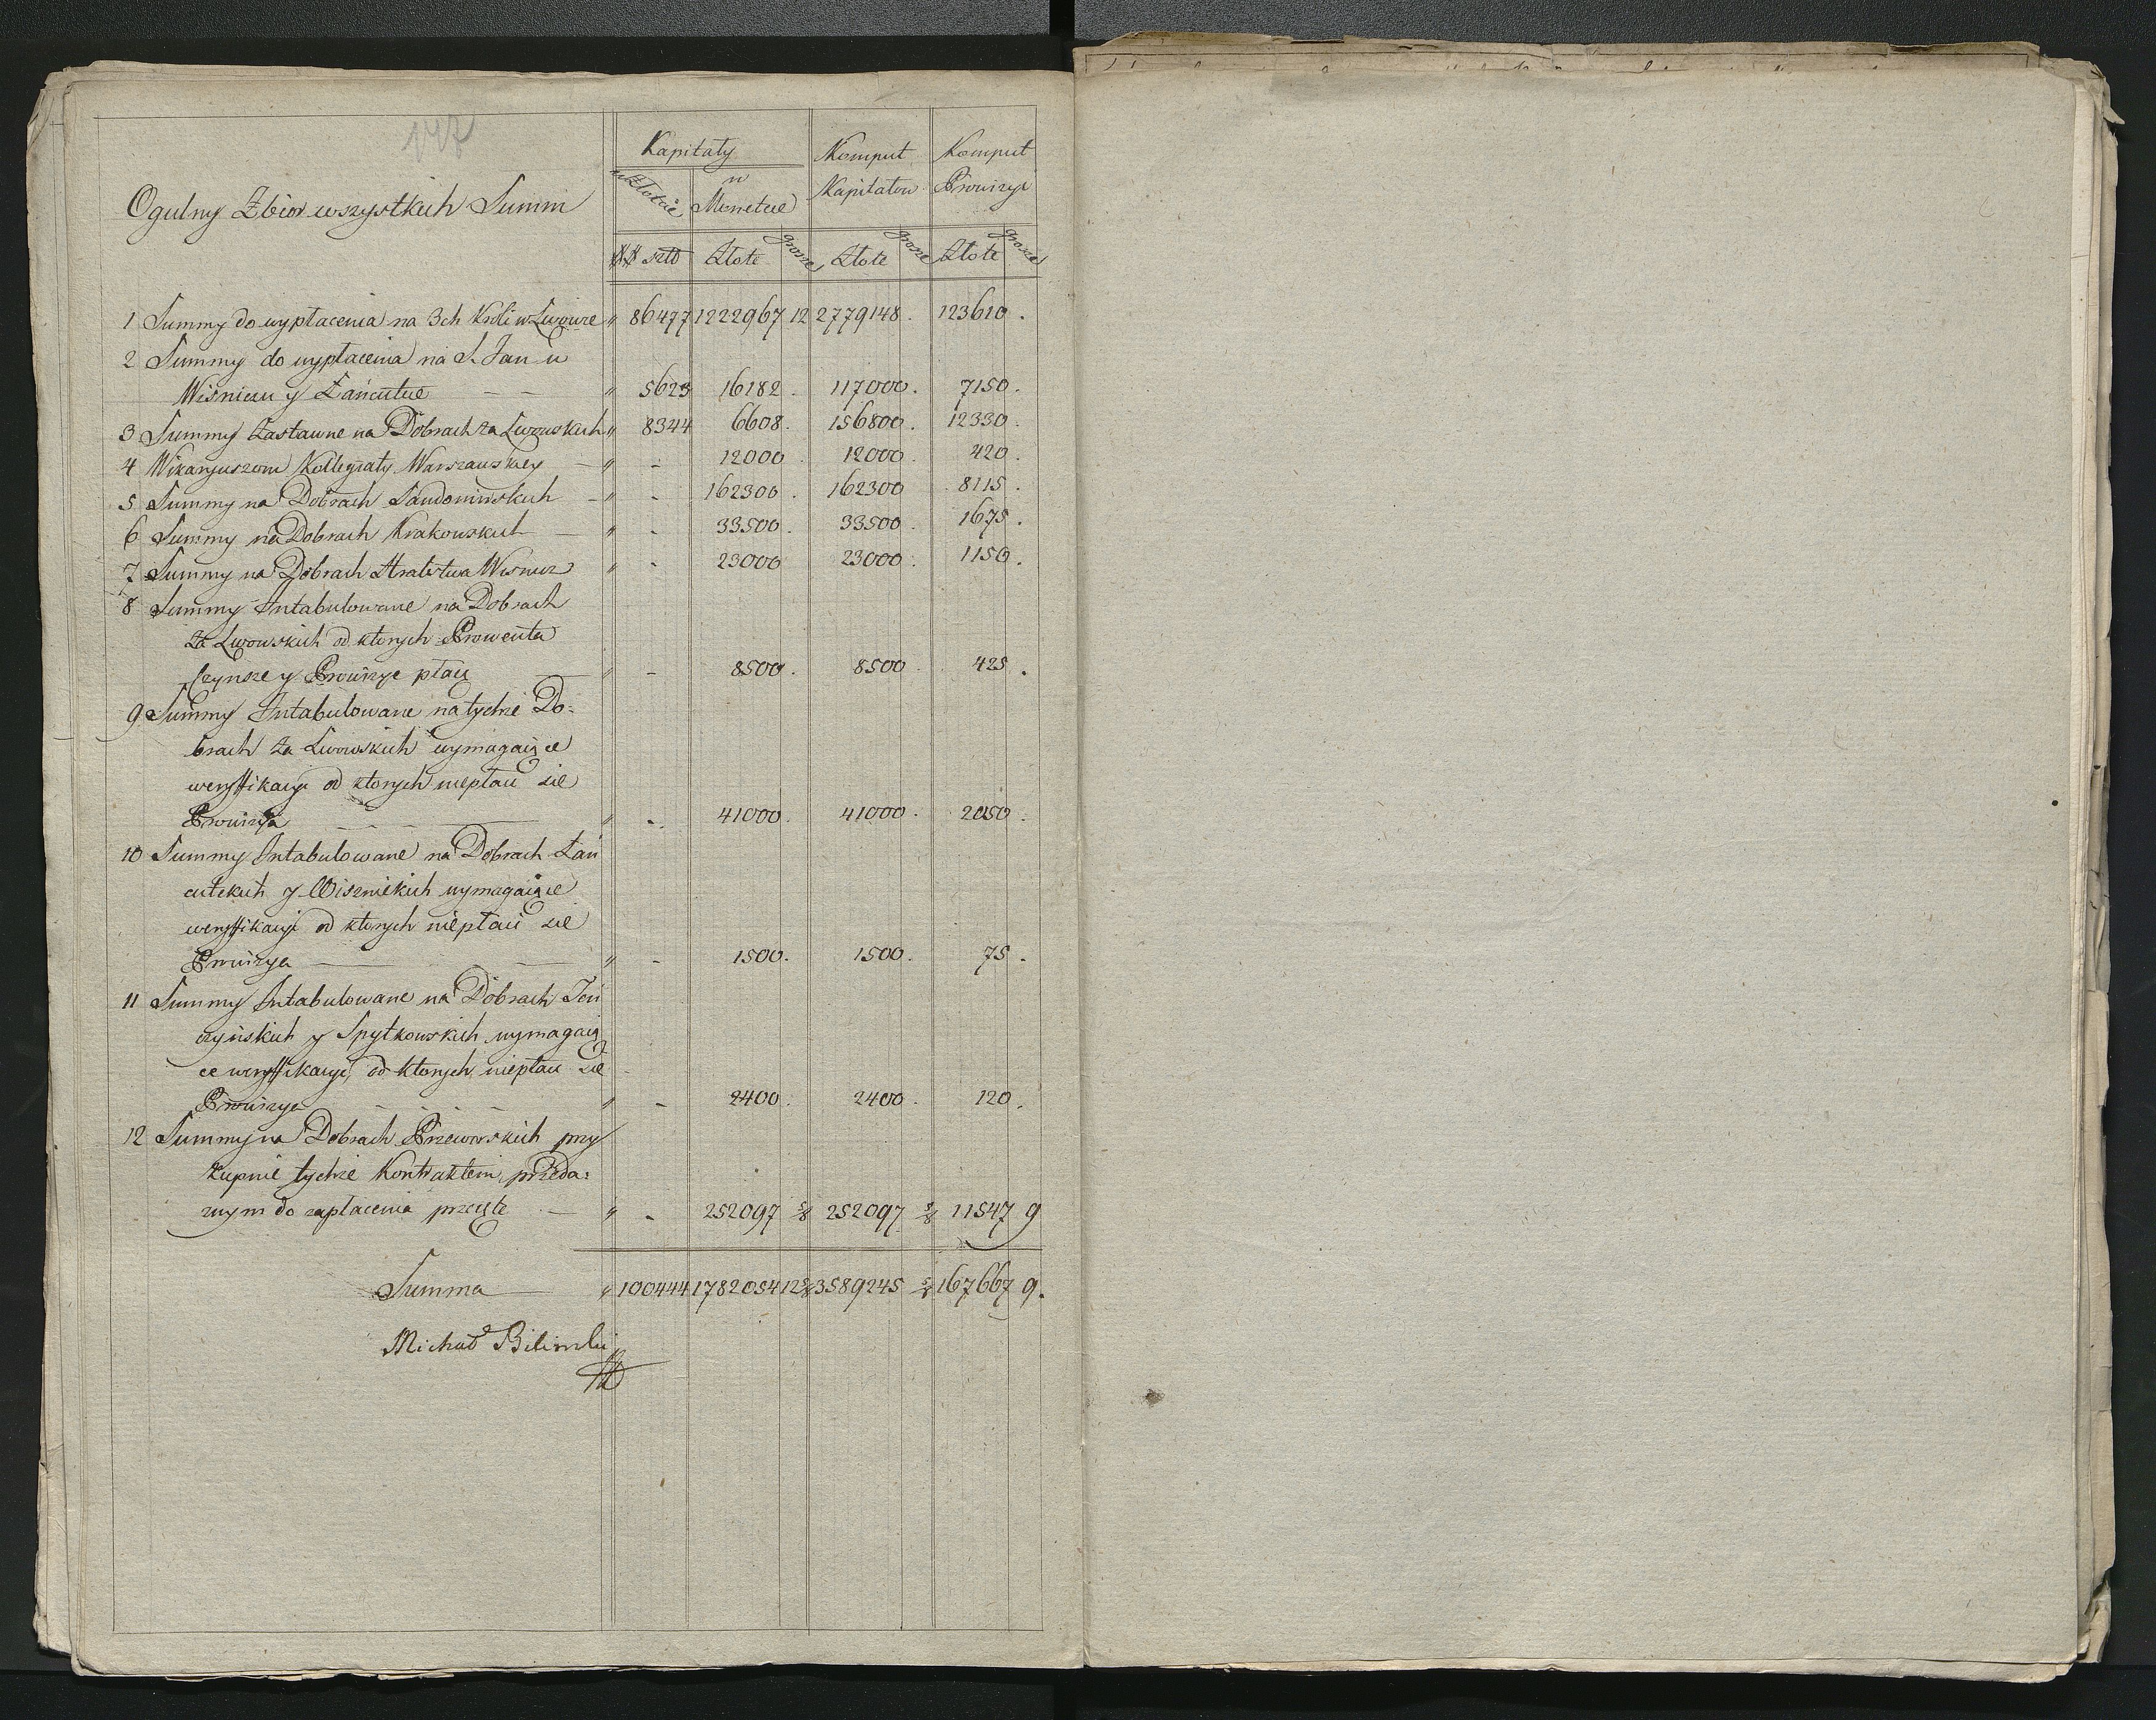 147
Ogulny Zbior wszystkich Summ
Kapitały Komput Komput
w Złotcie w Monetcie Kapitałow Prowizyi
## szt Złote grosze Złote grosze Złote grosze
1 Summy do wypłacenia na 3ch Kroli w Lwowie " 86477 1222967 12 2779148 . 123610 .
2 Summy do wypłacenia na S. Jan w
Wisniczu y Łańcutcie — — " 5623 16182 . 117000 . 7150 .
3 Summy Zastawne na Dobrach za Lwowskich " 8344 6608 . 156800 . 12330 .
4 Wikaryuszom Kollegiaty Warszawskiey — " - 12000 . 12000 . 420 .
5 Summy na Dobrach Sandomirskich — " - 162300 . 162300 8115 .
6 Summy na Dobrach Krakowskich — " - 33500 . 33500 . 1675 .
7 Summy na Dobrach Hrabstwa Wisnicz " - 23000 23000 . 1150 .
8 Summy Intabulowane na Dobrach
za Lwowskich od ktorych Prowenta
Czynsze y Prowizye płaci " - 8500 . 8500 . 425 .
9 Summy Intabulowane na tychże Do:
brach za Lwowskich wymagaiące
weryffikacyi od ktorych niepłaci sie
Prowizya — — " - 41000 . 41000 . 2050 .
10 Summy Intabulowane na Dobrach Łań
cutskich y Wisznickich wymagaiące
weryffikacyi od ktorych niepłaci sie
Prowizya — — " - 1500 . 1500 . 75 .
11 Summy Intabulowane na Dobrach Ten
czyńskich y Spytkowskich wymagaią
ce weryffikacyi, od ktorych niepłaci sie
Prowizya - - - " - 2400 . 2400 . 120 .
12 Summy na Dobrach Przeworskich przy
kupnie tychże Kontraktem przeda:
znym do zapłacenia przeięte — " - 252097 5/8 252097 5/8 11547 9
Summa — " 100444 1782054 12 5/8 3589245 5/8 167667 9 .
Michał